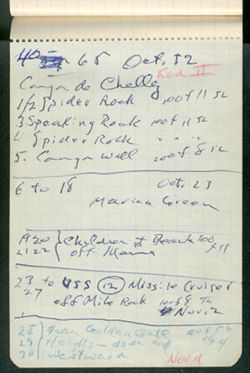 65 Oct. 52
Canyon de Chelly
Rod II
1/2 Spider Rock 100 f 11 52
3 Speaking Rock 100 f 11 52
4 Spider Rock " " "
5. Canyon Wall f 8
6 to 18 Oct. 23
Marina Green
1920 Children + Beach 100 f 11
2122 off Marina
23 to USS (12) Missile Cruiser
27 off Mile Rock 100 f 8
Nov. 2
28 from Golden Gate
29 Heights – down and
30 westward
Nov 11